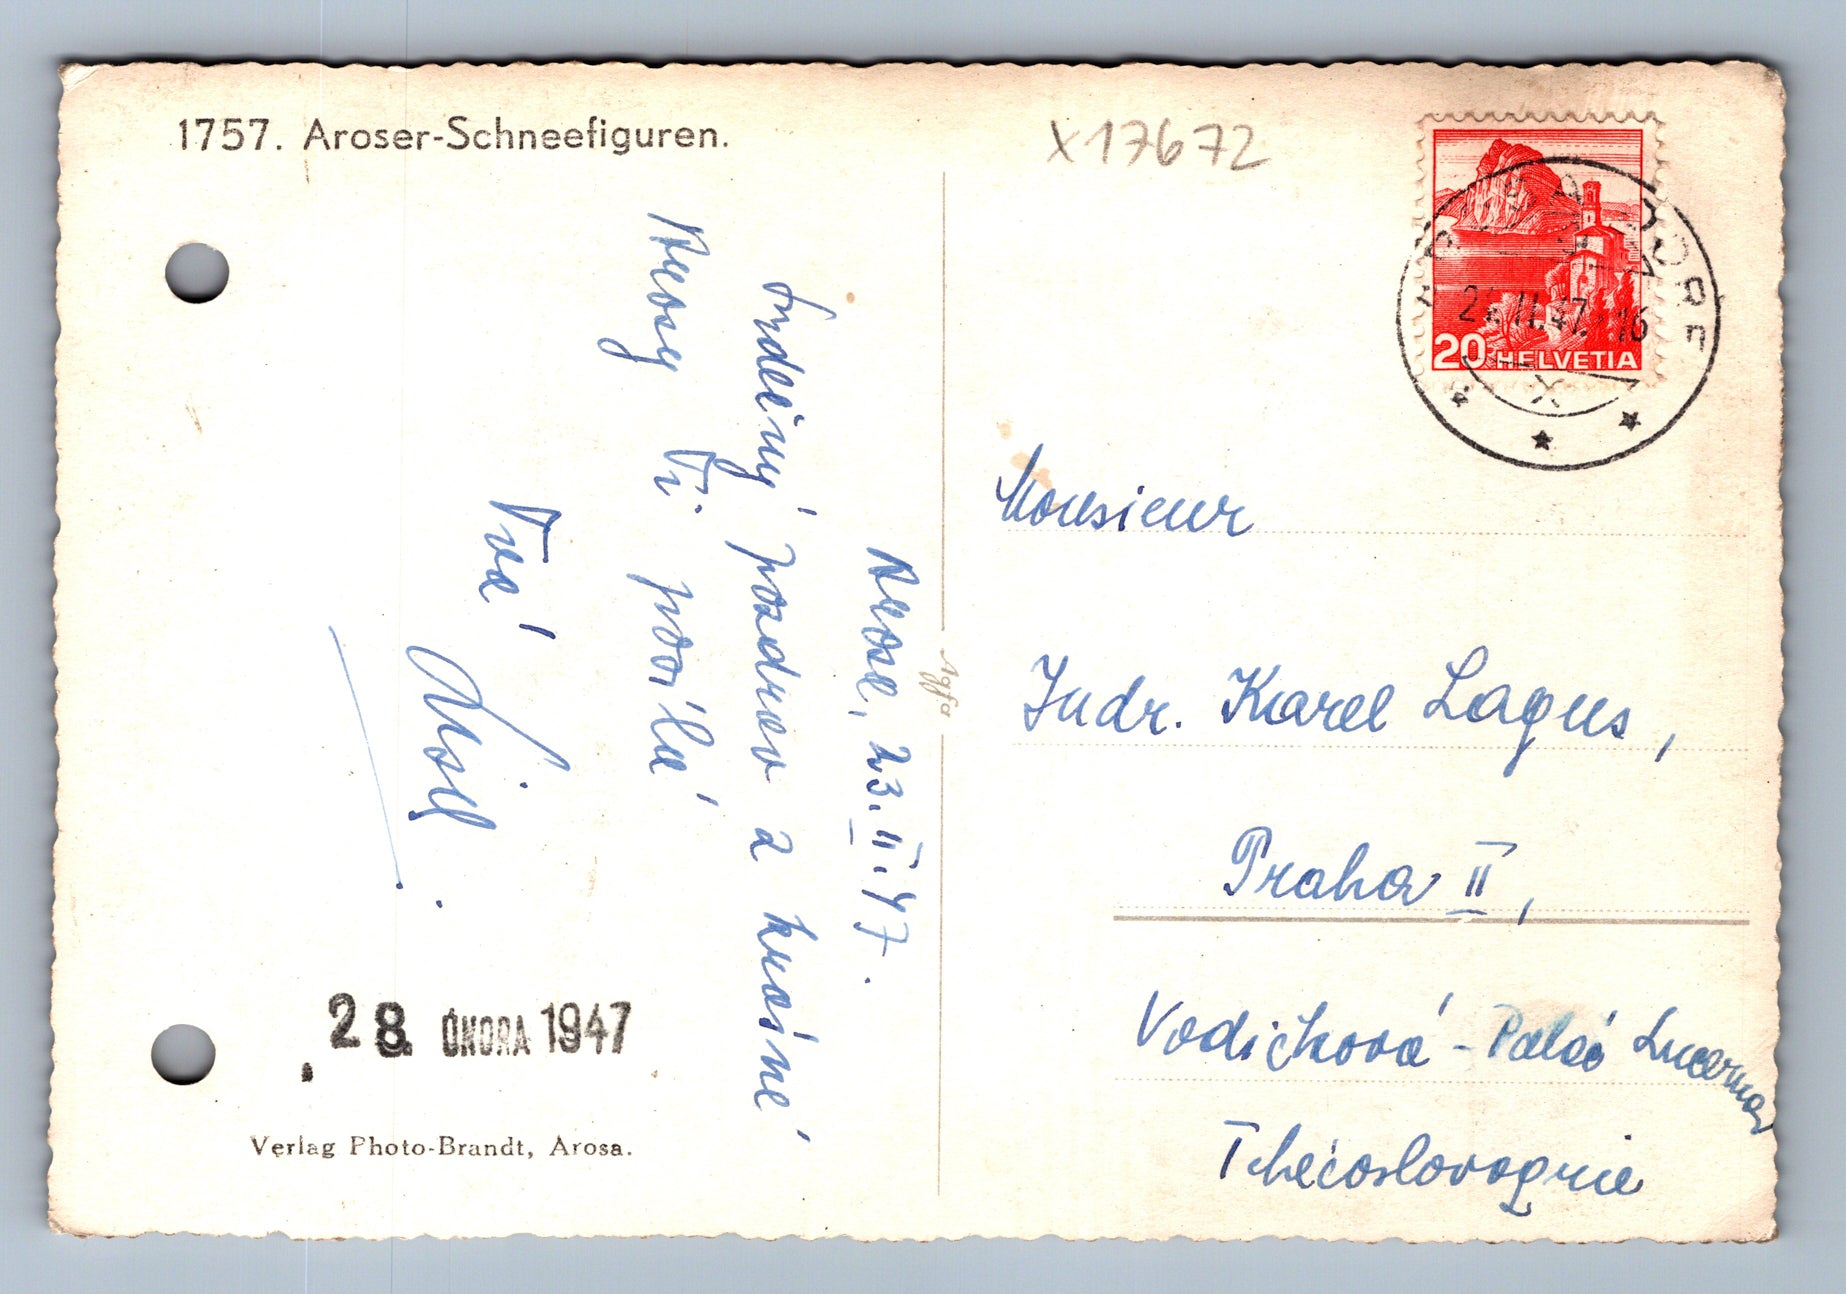 1757. Aroser-Schneefiguren.
X17672
20 HELVETIA
II.47. 16
Arosa, 23.II.47.
Srdečný pozdrav z krásné
Arosy Ti posílá
Tvá
Agfa
Monsieur
Judr. Karel Lagus,
Praha II,
Vodičková - Palác Lucerna
Tchécoslovaquie
28. ÚNORA 1947
Verlag Photo-Brandt, Arosa.